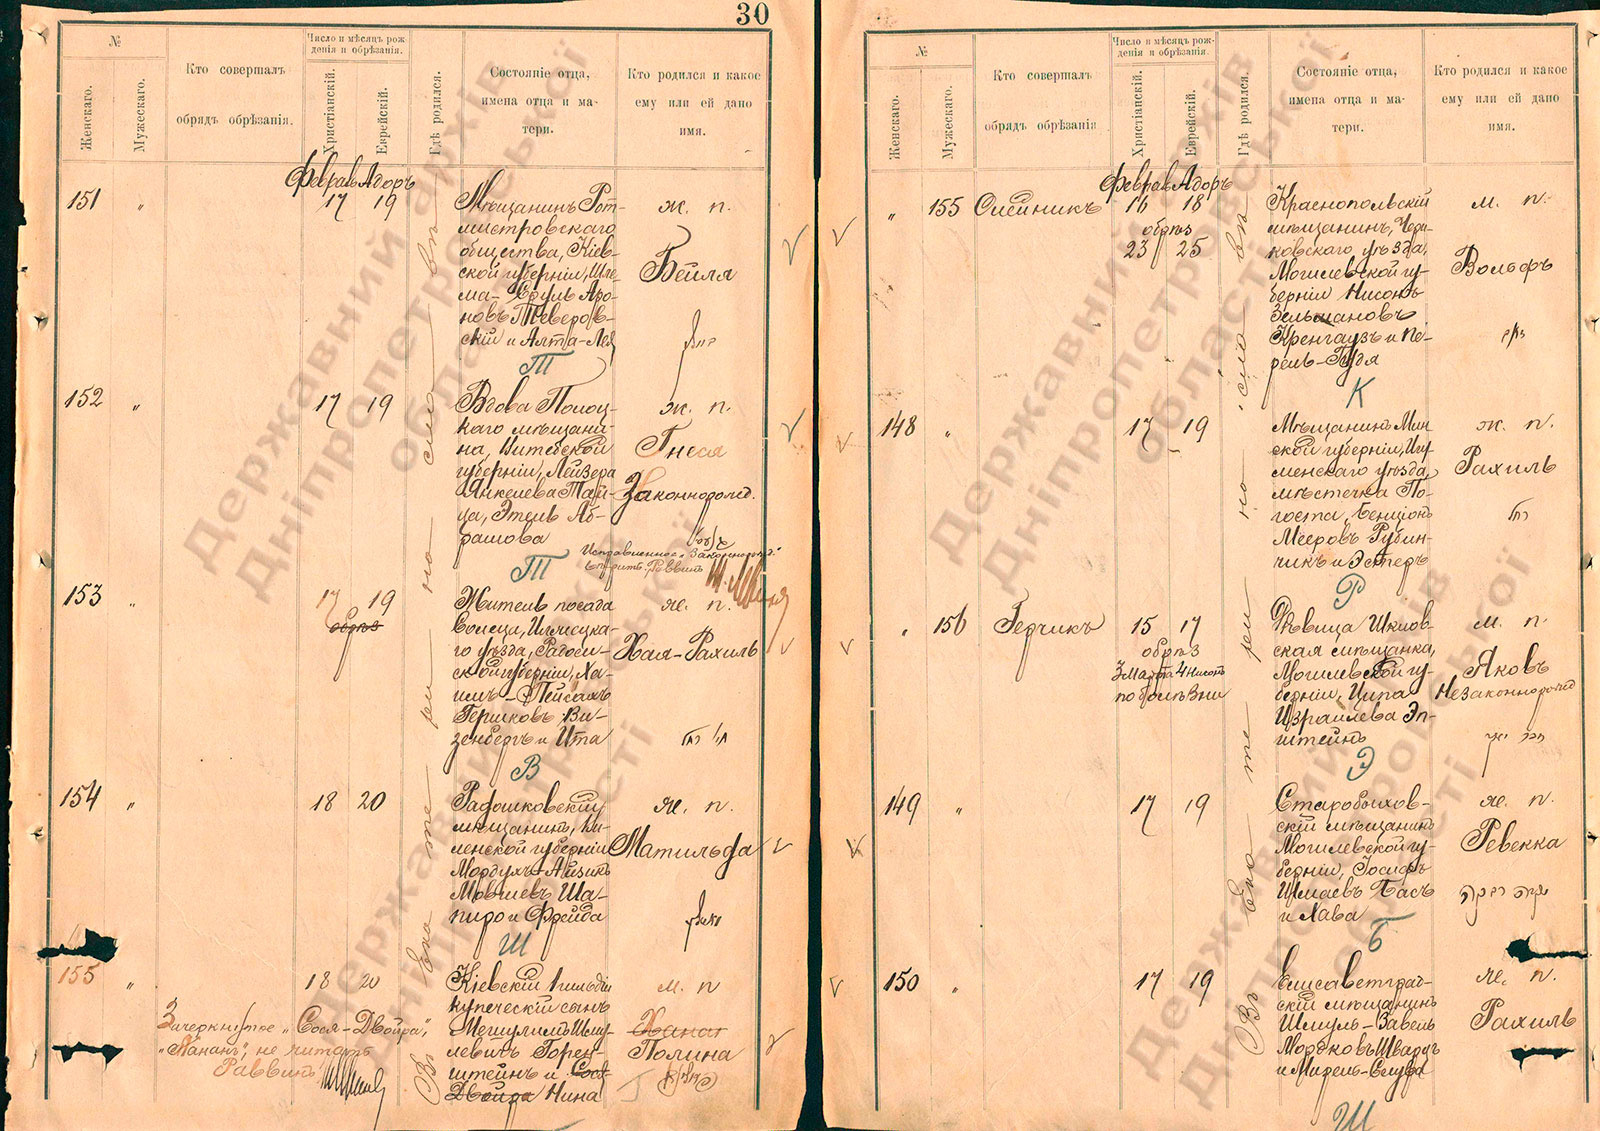 30
№
Женскаго.
Мужескаго.
Кто совершалъ
обрядъ обрѣзанія.
Число и мѣсяцъ рож-
денія и обрѣзанія.
Христіанскій.
Еврейскій.
Гдѣ родился.
Состояніе отца,
имена отца и ма-
тери.
Кто родился и какое
ему или ей дано
имя.
Февраль Адоръ
151 " 17 19
Мѣщанинъ Рот-
мистровскаго
общества, Кіев-
ской губерніи, Шле-
ма-Сруль Аро-
новъ Тверов-
скій и Алта-Лея
Т
ж. п.
Бейля
152 " 17 19
Вдова Полоц-
каго мѣщани-
на, Витебской
губерніи, Лейзера
Янкелева Тай-
ца, Этель Аб-
рамова
Т
ж. п.
Гнеся
Законнорожд.
Исправленное "Законнорожд."
Раввинъ
153 " 17 19
обрѣз
Житель посада
Солеца, Илжецка-
го уѣзда, Радом-
ской губерніи, Ха-
имъ-Пейсахъ
Гершковъ Ви-
зенбергъ и Ита
В
ж. п.
Хая-Рахиль
154 " 18 20
Радошковскій
мѣщанинъ, Ви-
ленской губерніи
Мордухъ-Айзикъ
Мовшевъ Ша-
пиро и Фрейда
Ш
ж. п.
Матильда
155 " 18 20
Кіевскій 1 гильдіи
купеческій сынъ
Мешулимъ Шму-
левичъ Горен-
штейнъ и Сося
Двойра Нина
м. п.
Ханан
Полина
Зачеркнутое "Сося-Двойра",
"Ханан", не читать
Раввинъ
Въ Ека те ри но сла вѣ
№
Женскаго.
Мужескаго.
Кто совершалъ
обрядъ обрѣзанія
Число и мѣсяцъ рож-
денія и обрѣзанія.
Христіанскій.
Еврейскій.
Гдѣ родился.
Состояніе отца,
имена отца и ма-
тери.
Кто родился и какое
ему или ей дано
имя.
Февраль Адоръ
" 155 Олейникъ 16 18
обрѣз
23 25
Краснопольскій
мѣщанинъ, Чери-
ковскаго уѣзда,
Могилевской гу-
берніи Нисонъ
Зельмановъ
Кренгаузъ и Пе-
рель-Гудя
К
м. п.
Вольфъ
148 " 17 19
Мѣщанинъ Мин-
ской губерніи, Игу-
менскаго уѣзда,
мѣстечка По-
госта, Бенціонъ
Мееров Рубин-
чикъ и Эстеръ
Р
ж. п.
Рахиль
רחל
" 156 Герчикъ 15 17
обрѣз
3 Марта 4 Нисонъ
по болѣзни
Дѣвица Шклов-
ская мѣщанка,
Могилевской гу-
берніи, Ципа
Израилева Эп-
штейнъ
Э
м. п.
Яковъ
Незаконнорожд
149 " 17 19
Старобыхов-
скій мѣщанинъ
Могилевской гу-
берніи, Іосифъ
Шмаевъ Басъ
и Хава
Б
ж. п.
Ревекка
150 " 17 19
Елисаветград-
скій мѣщанинъ
Шмуль-Завель
Мордковъ Шварцъ
и Мирель-Ельфа
Ш
ж. п.
Рахиль
Въ Ека те ри но сла вѣ
Державний архів
Дніпропетровської
області